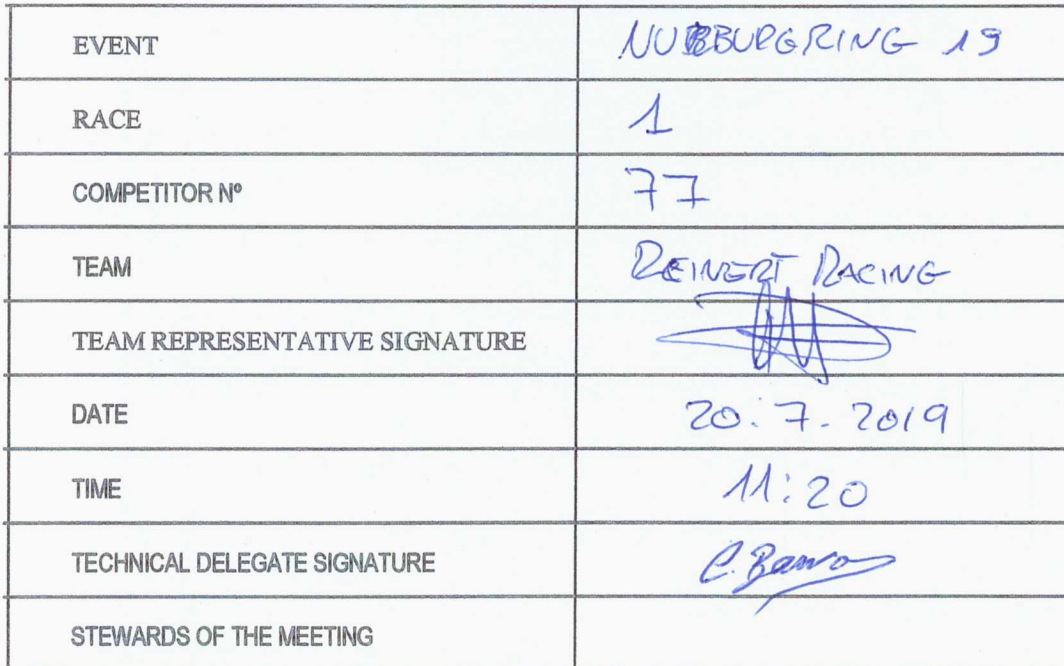 EVENT NURBURGRING 19
RACE 1
COMPETITOR Nº 77
TEAM REINERT RACING
TEAM REPRESENTATIVE SIGNATURE
DATE 20.7.2019
TIME 11:20
TECHNICAL DELEGATE SIGNATURE
STEWARDS OF THE MEETING